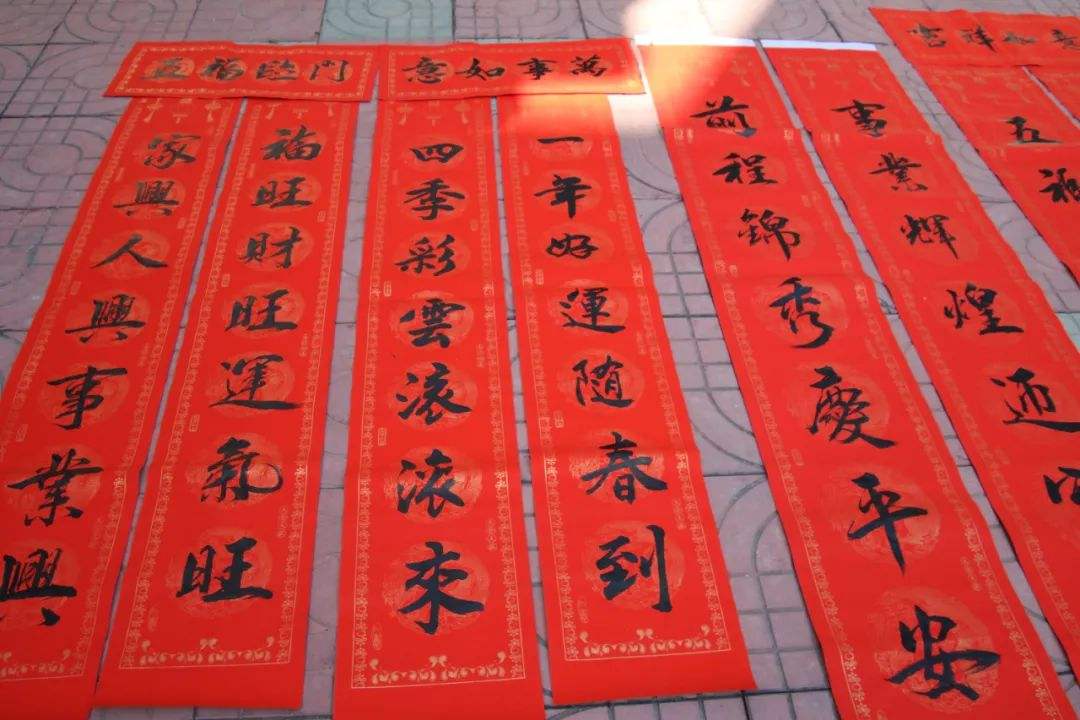 五福臨門
萬事如意
吉祥如意
家興人興事業興
福旺財旺運氣旺
四季彩雲滚滚來
一年好運随春到
前程錦秀慶平安
事業輝煌迎
五福